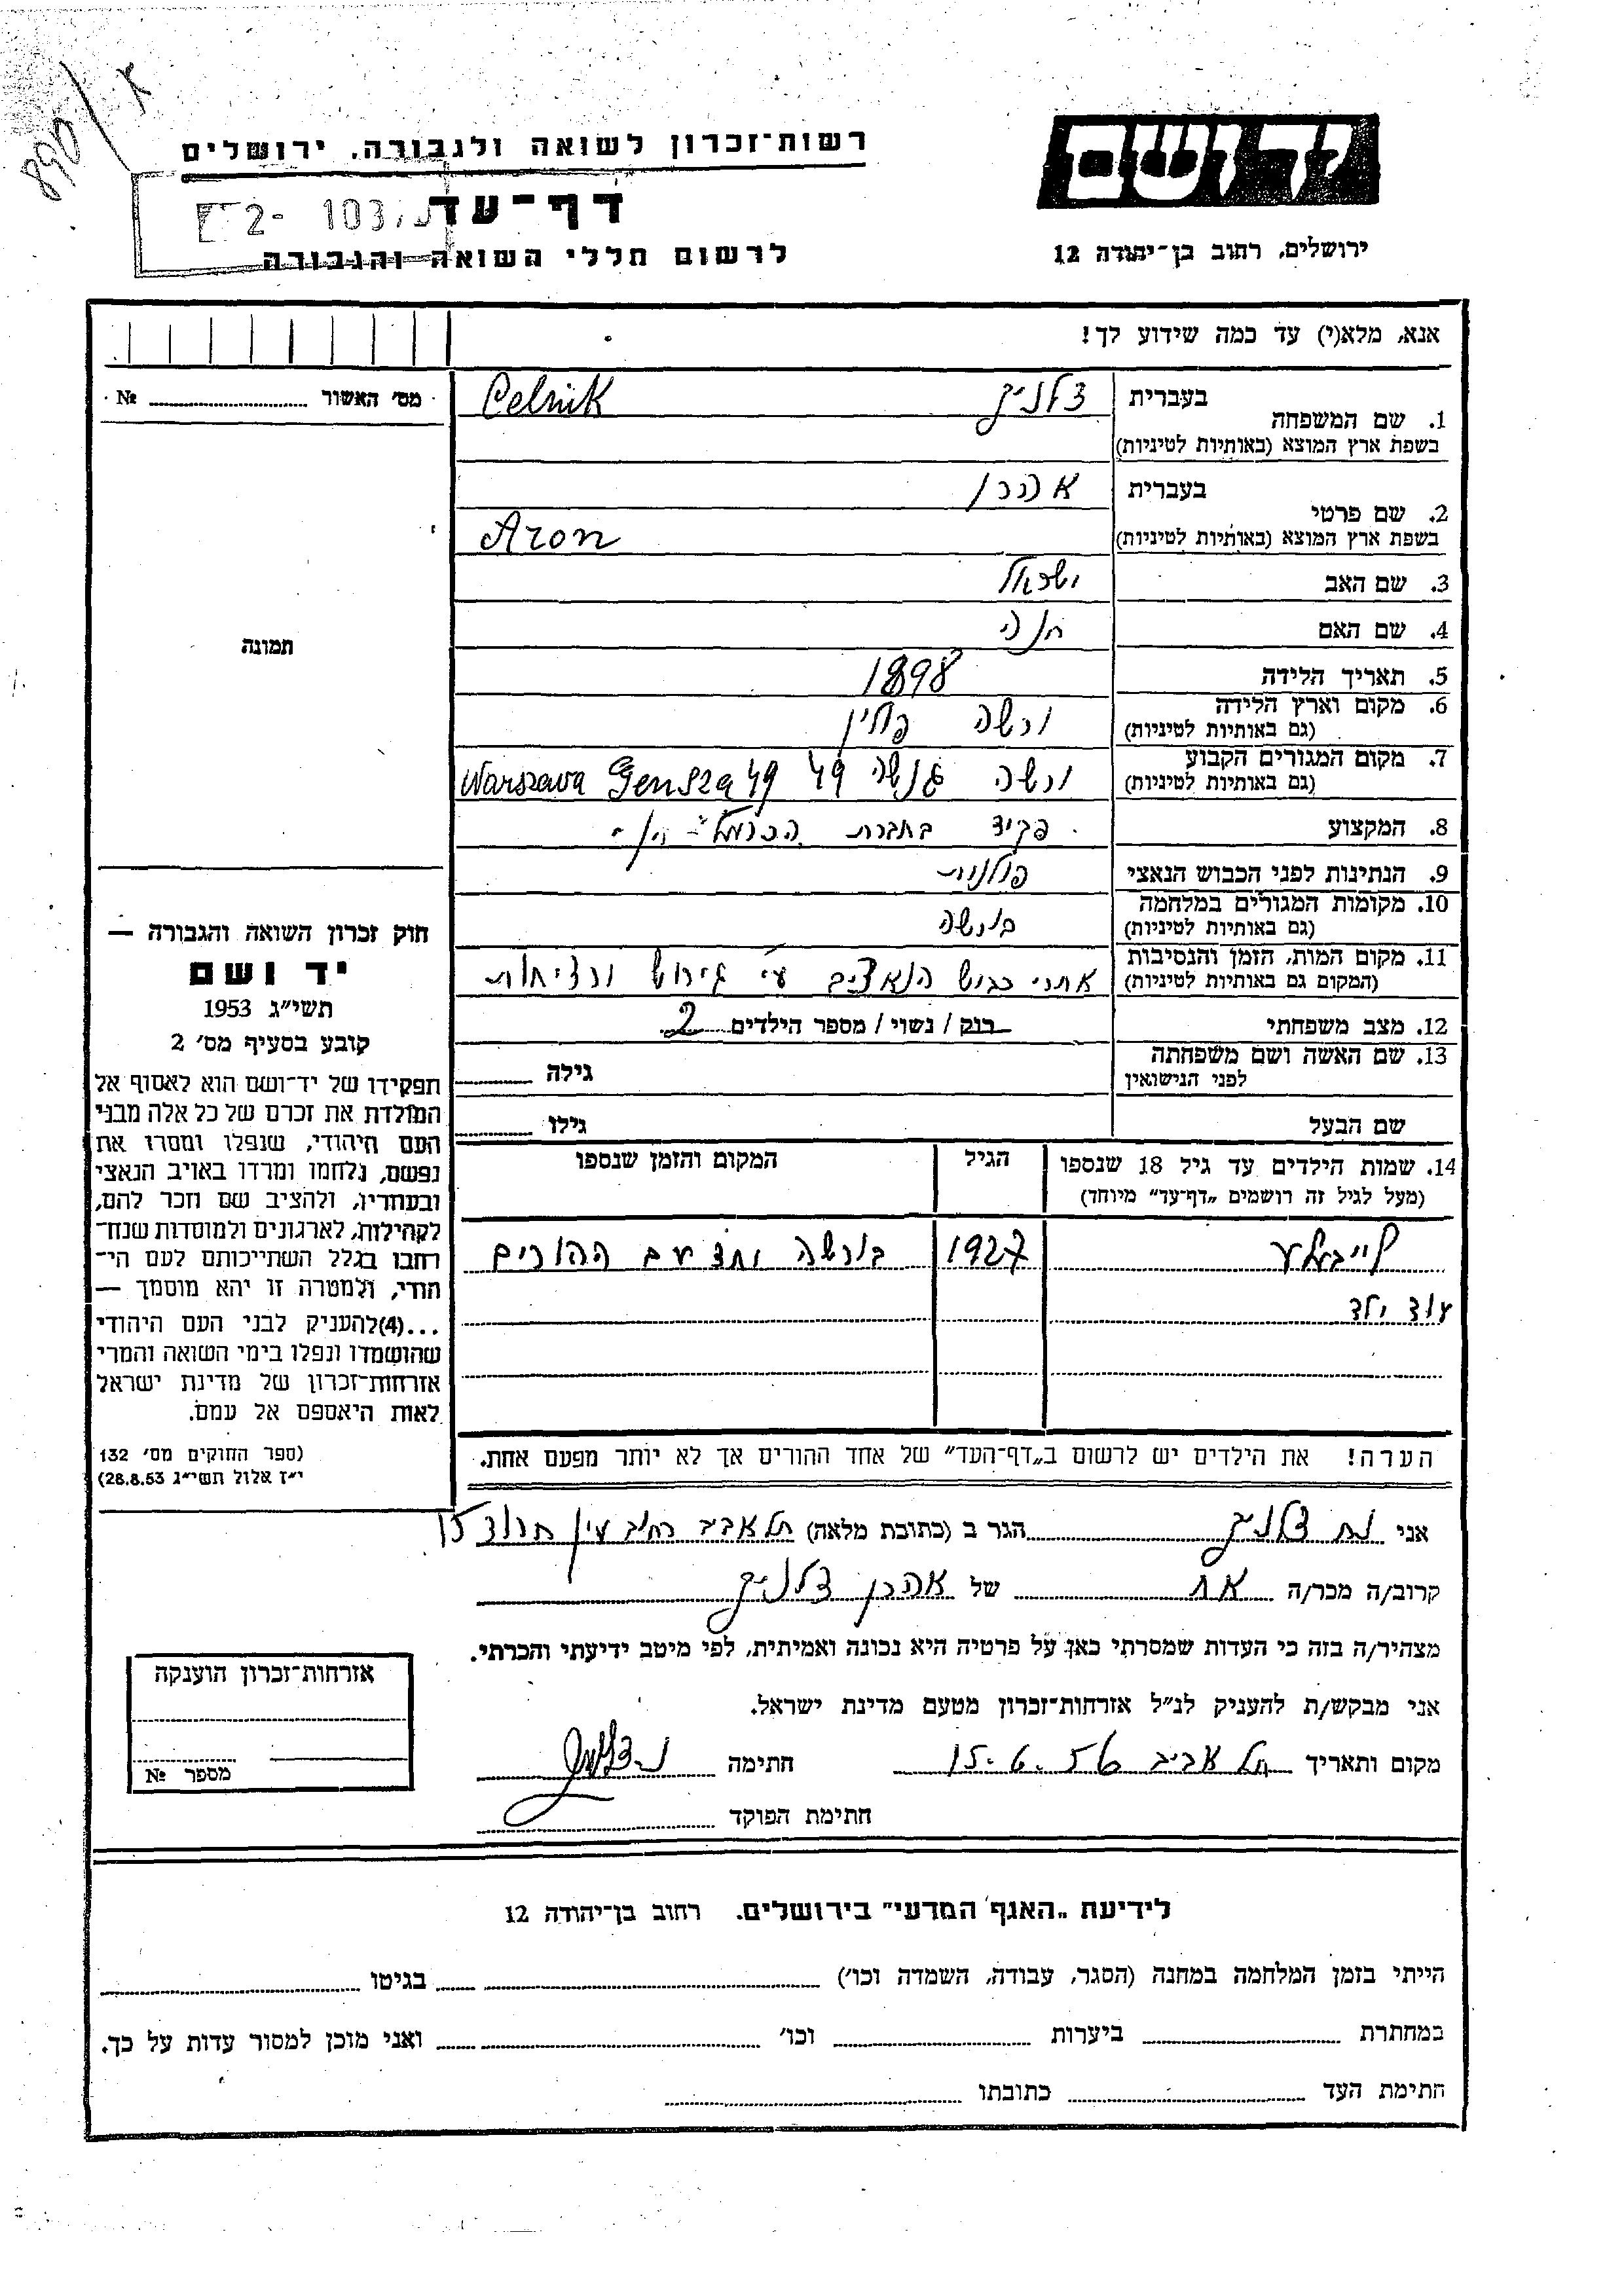 890/א
יד ושם
ירושלים, רחוב בן־יהודה 12
רשות־זכרון לשואה ולגבורה, ירושלים
דף־עד
לרשום חללי השואה והגבורה
אנא, מלא(י) עד כמה שידוע לך!
1. שם המשפחה בעברית צלניק Celnik
בשפת ארץ המוצא (באותיות לטיניות)
2. שם פרטי בעברית אהרן
בשפת ארץ המוצא (באותיות לטיניות) Aron
3. שם האב ישראל
4. שם האם חנה
5. תאריך הלידה 1898
6. מקום וארץ הלידה ורשה פולין
(גם באותיות לטיניות)
7. מקום המגורים הקבוע ורשה גנשה 49 Warszawa Gensza 49
(גם באותיות לטיניות)
8. המקצוע פקיד בחברת הכרמל
9. הנתינות לפני הכבוש הנאצי פולנית
10. מקומות המגורים במלחמה בורשה
(גם באותיות לטיניות)
11. מקום המות, הזמן והנסיבות אחרי כבוש הנאצים ע״י גירוש ורציחות
(המקום גם באותיות לטיניות)
12. מצב משפחתי רוק / נשוי / מספר הילדים 2
13. שם האשה ושם משפחתה גילה
לפני הנישואין
שם הבעל גילו
14. שמות הילדים עד גיל 18 שנספו הגיל המקום והזמן שנספו
(מעל לגיל זה רושמים „דף־עד״ מיוחד)
לייבעלע 1927 בורשה יחד עם ההורים
עוד ילד
הערה! את הילדים יש לרשום ב„דף־העד״ של אחד ההורים אך לא יותר מפעם אחת.
מס׳ האשור №
תמונה
חוק זכרון השואה והגבורה —
יד ושם
תשי״ג 1953
קובע בסעיף מס׳ 2
תפקידו של יד־ושם הוא לאסוף אל
המולדת את זכרם של כל אלה מבני
העם היהודי, שנפלו ומסרו את
נפשם, נלחמו ומרדו באויב הנאצי
ובעוזריו, ולהציב שם וזכר להם,
לקהילות, לארגונים ולמוסדות שנח־
רבו בגלל השתייכותם לעם הי־
הודי, ולמטרה זו יהא מוסמך —
...(4)להעניק לבני העם היהודי
שהושמדו ונפלו בימי השואה והמרי
אזרחות־זכרון של מדינת ישראל
לאות היאספם אל עמם.
(ספר החוקים מס׳ 132
י״ז אלול תשי״ג 28.8.53)
אני נח צלניק הגר ב (כתובת מלאה) תל אביב רחוב עין חרוד 15
קרוב/ה מכר/ה אח של אהרן צלניק
מצהיר/ה בזה כי העדות שמסרתי כאן על פרטיה היא נכונה ואמיתית, לפי מיטב ידיעתי והכרתי.
אני מבקש/ת להעניק לנ״ל אזרחות־זכרון מטעם מדינת ישראל.
מקום ותאריך תל אביב 15.6.56 חתימה נ. צלניק
חתימת הפוקד
אזרחות־זכרון הוענקה
מספר №
לידיעת „האגף המדעי״ בירושלים. רחוב בן־יהודה 12
הייתי בזמן המלחמה במחנה (הסגר, עבודה, השמדה וכו׳) בגיטו
במחתרת ביערות וכו׳ ואני מוכן למסור עדות על כך.
חתימת העד כתובתו